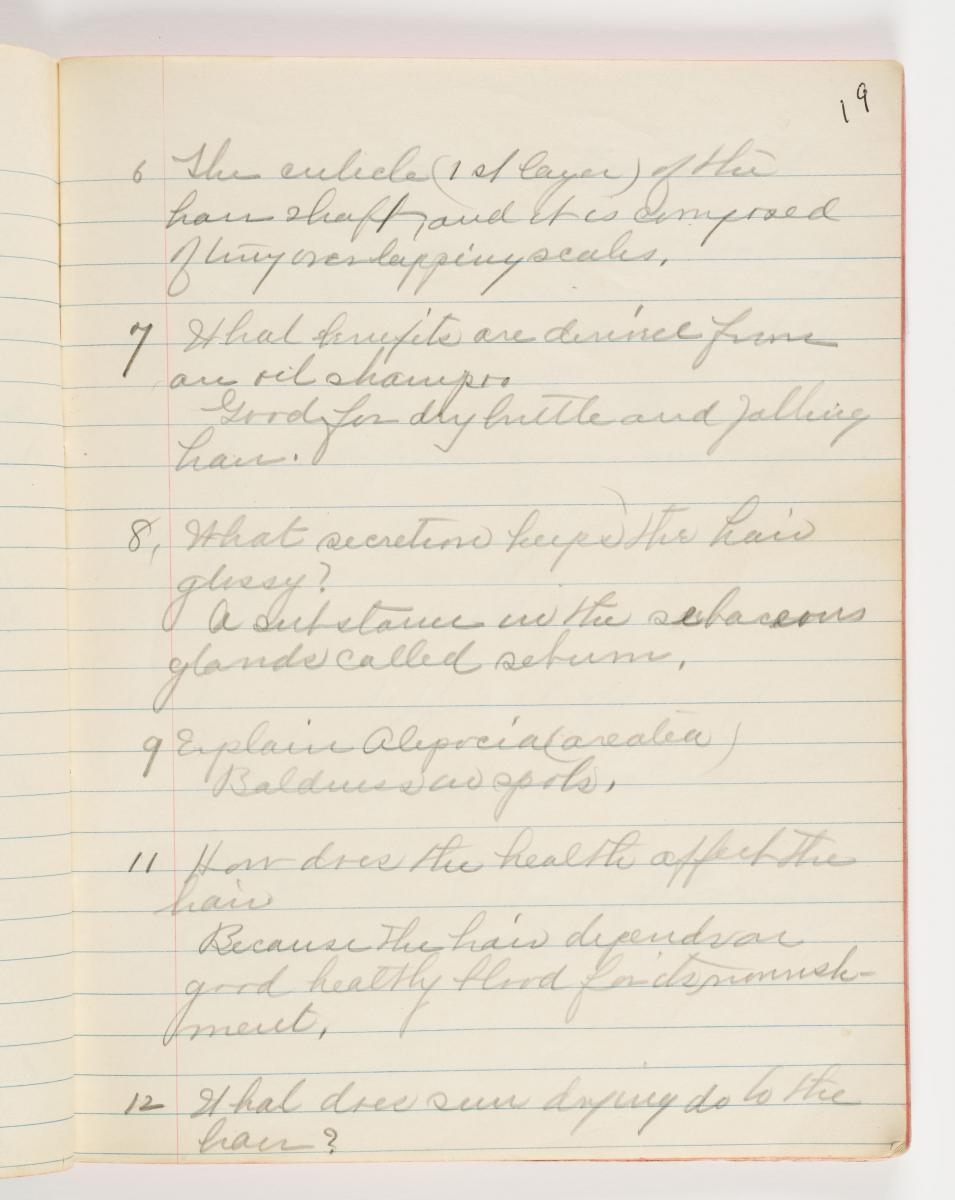 19
6 The cuticle (1st layer) of the
hair shaft, and it is composed
of tiny overlapping scales.
7 What benefits are derived from
an oil shampoo
Good for dry brittle and falling
hair.
8, What secretion keeps the hair
glossy?
A substance in the sebaceous
glands called sebum.
9 Explain Alepocia (areata)
Baldness in spots.
11 How does the health affect the
hair
Because the hair depends on
good healthy blood for its nourish-
ment.
12 What does sun drying do to the
hair?